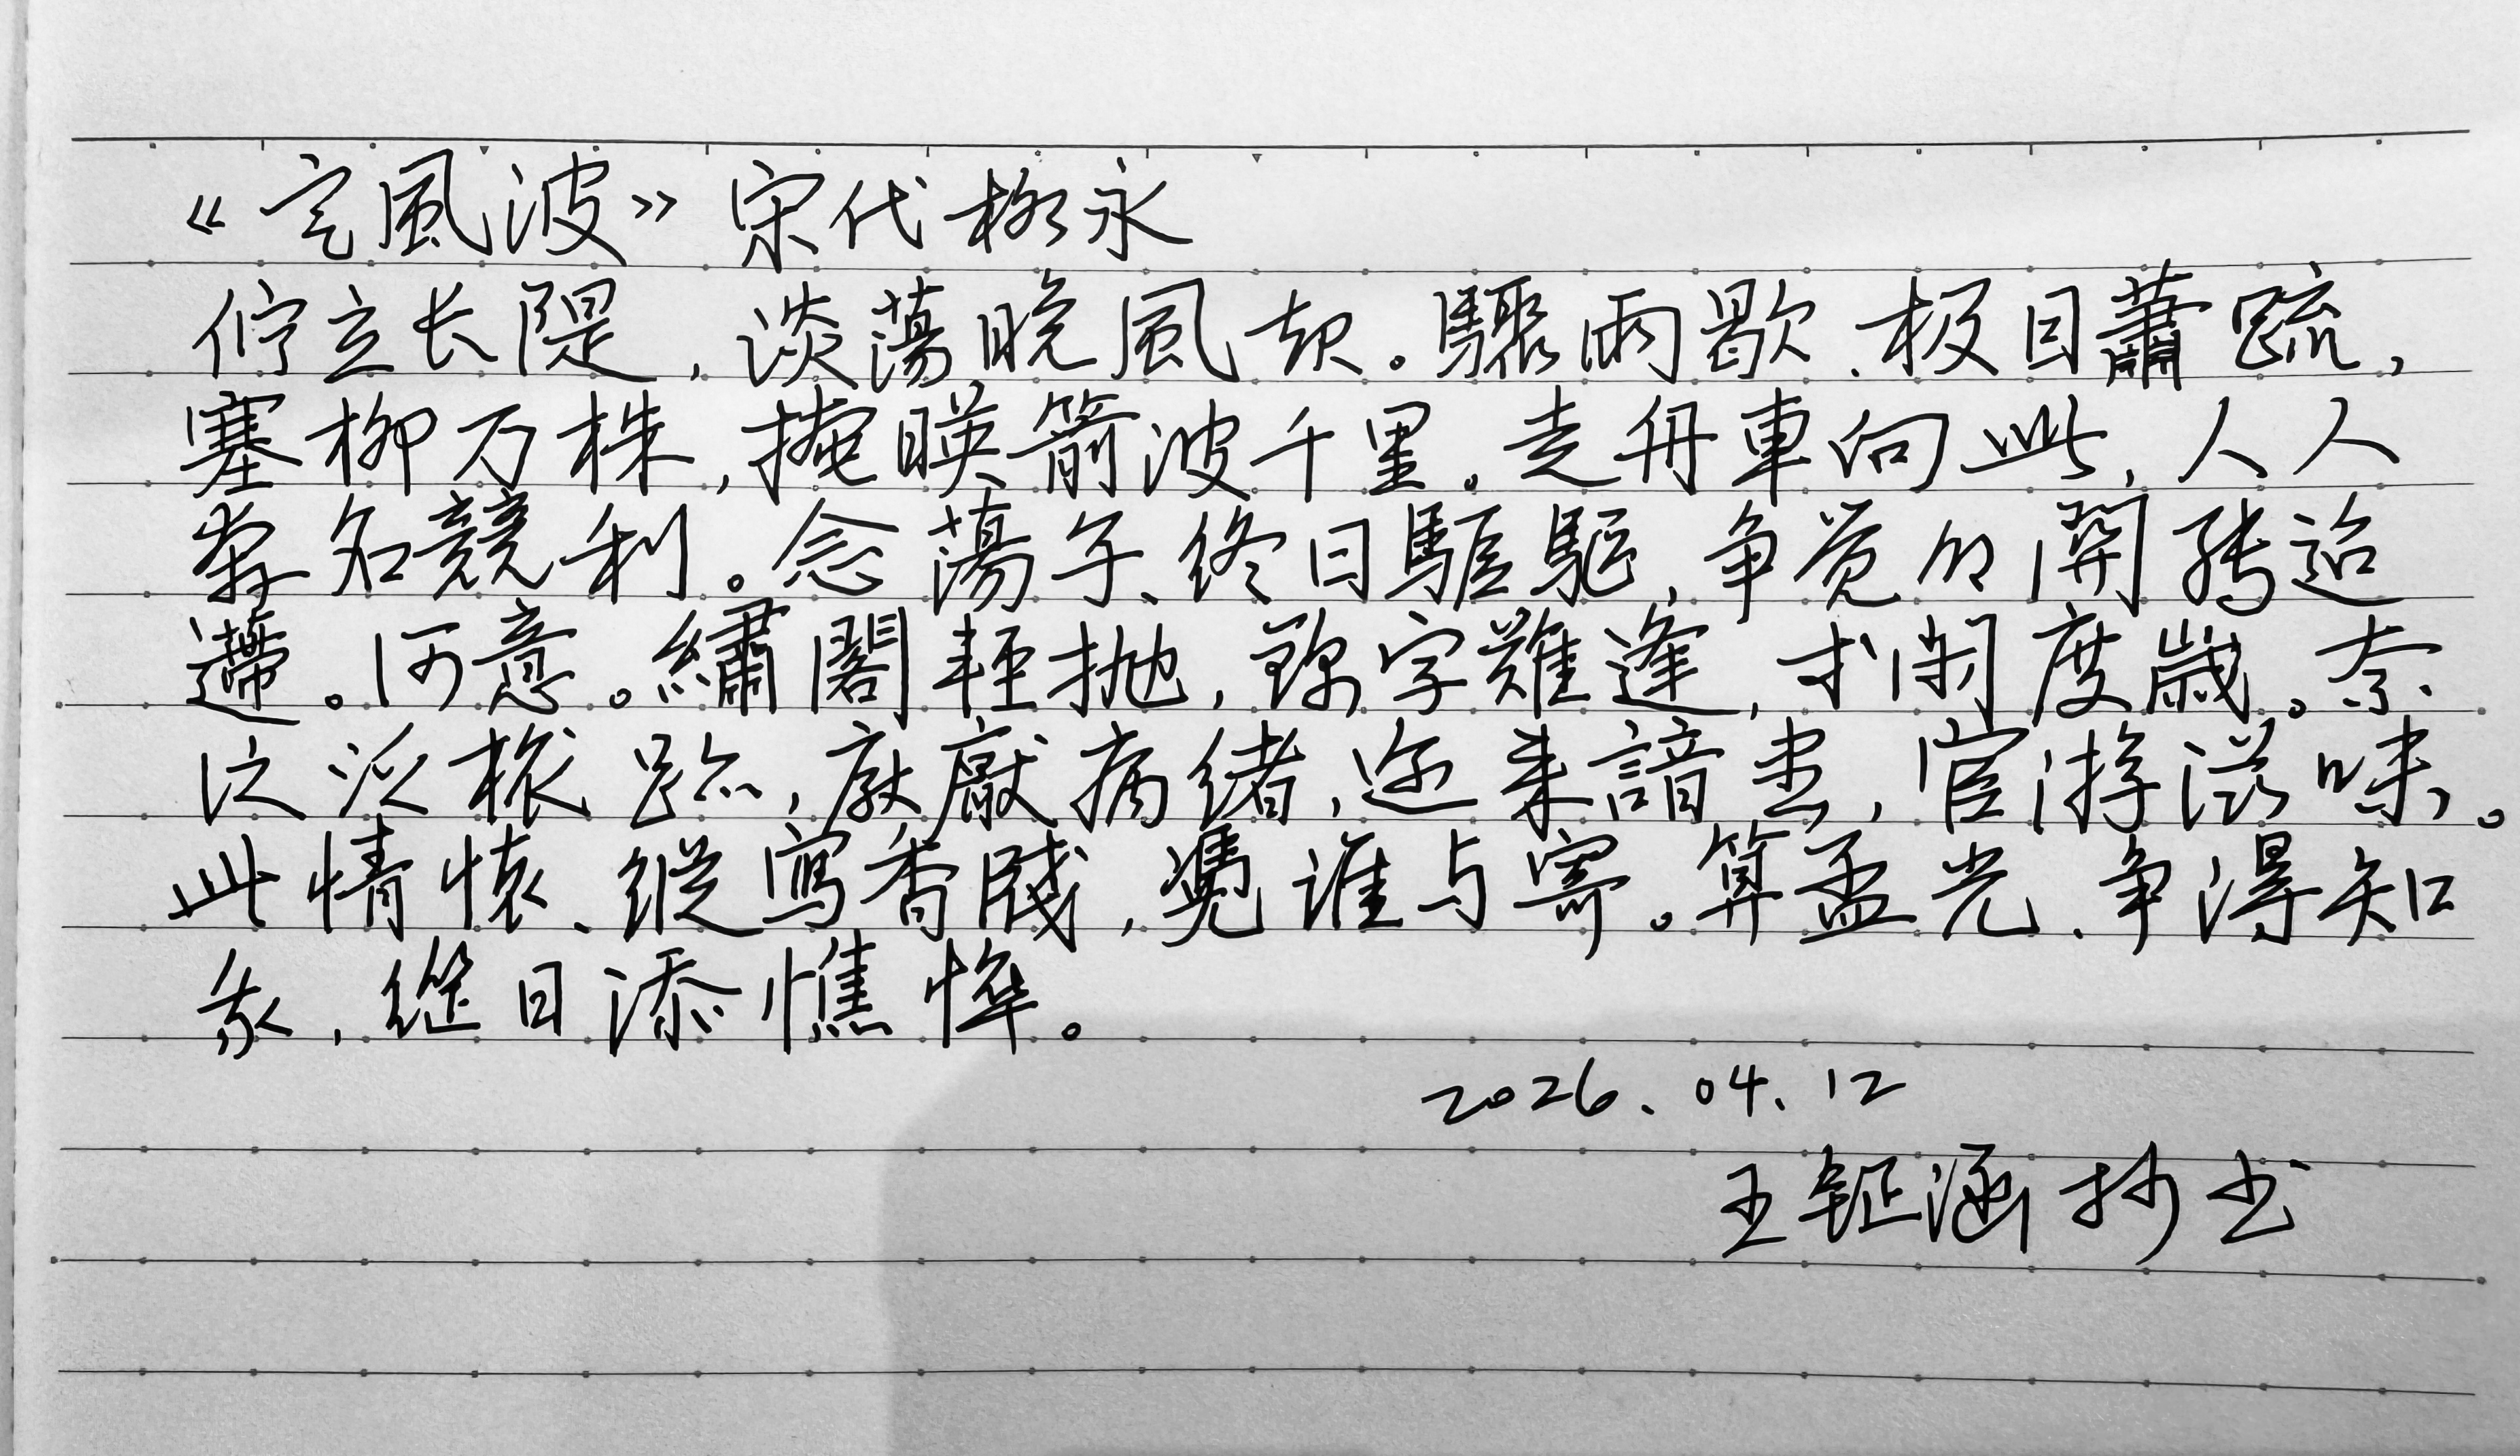 《定風波》宋代柳永
佇立长隄，淡蕩晚風起。驟雨歇、极目蕭疏，
塞柳万株，掩映箭波千里。走舟車向此，人人
奔名競利。念蕩子、终日驅驅，争觉乡關转迢
遰。何意。繡閣輕抛，錦字難逢，才闲度歲。奈
泛泛旅跡，厭厭病绪，迩来諳尽，宦游滋味。
此情懷、縱寫香牋，凴谁与寄。算孟光、争得知
我，继日添憔悴。
2026.04.12
王钲涵抄书